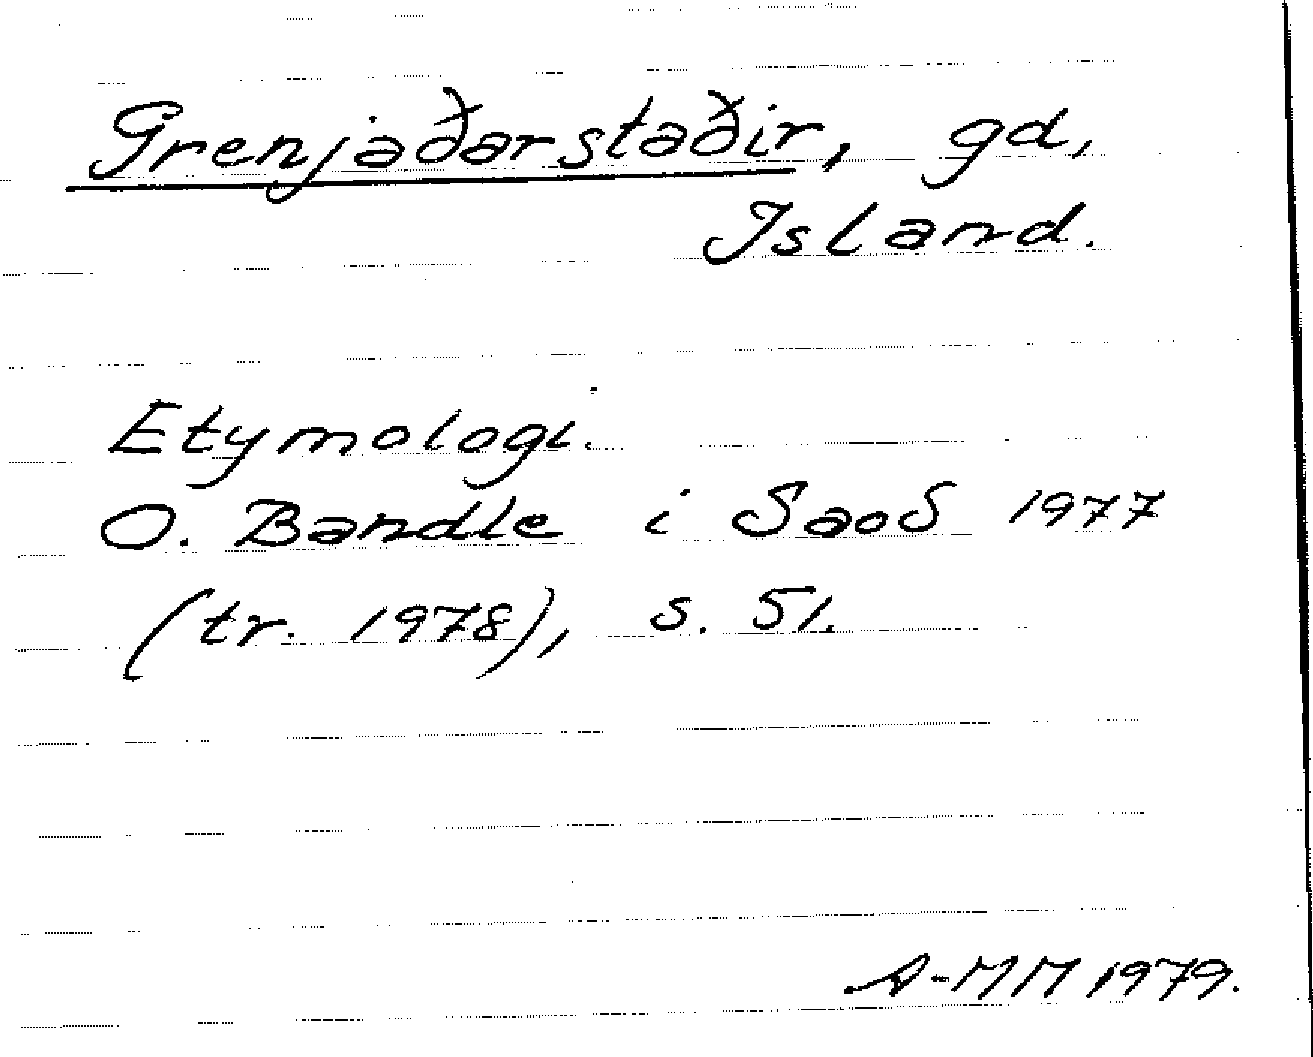 Grenjaðarstaðir, gd,
Island.
Etymologi.
O. Bandle i SaoS 1977
(tr. 1978), s. 51.
A-MM 1979.